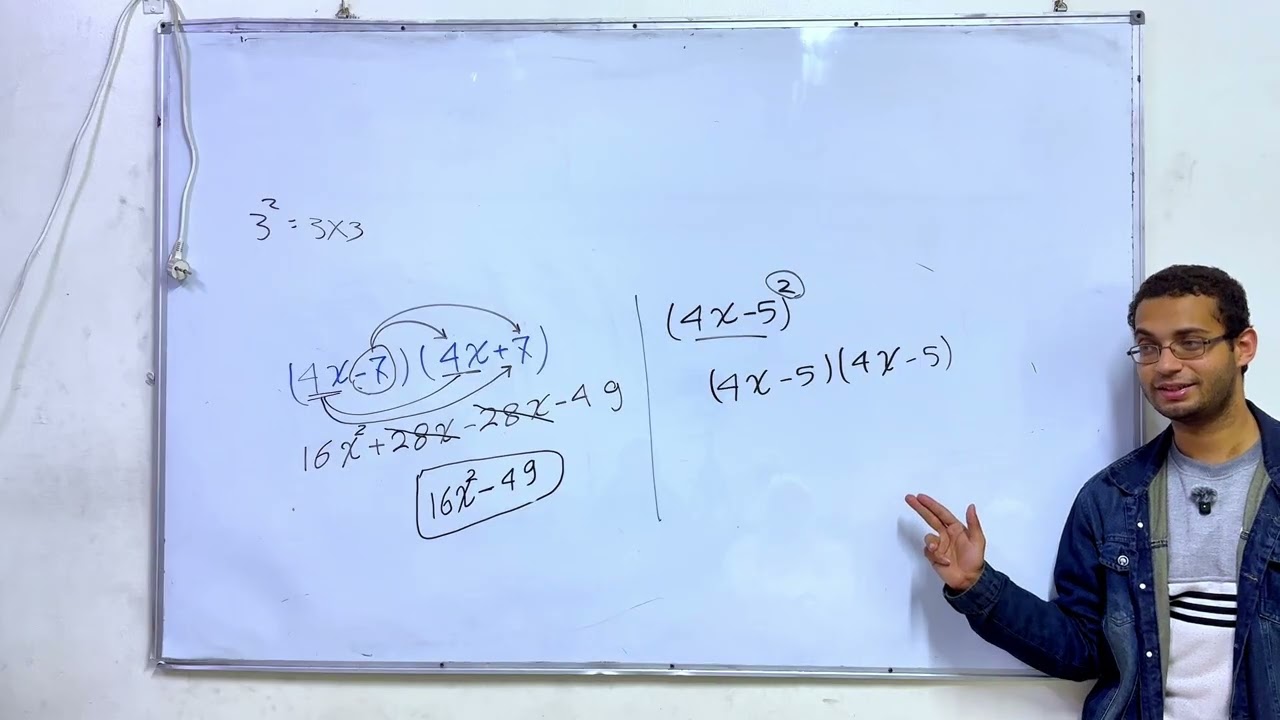 3² = 3×3
(4x-7)(4x+7)
16x²+28x-28x-49
16x²-49
(4x-5)²
(4x-5)(4x-5)